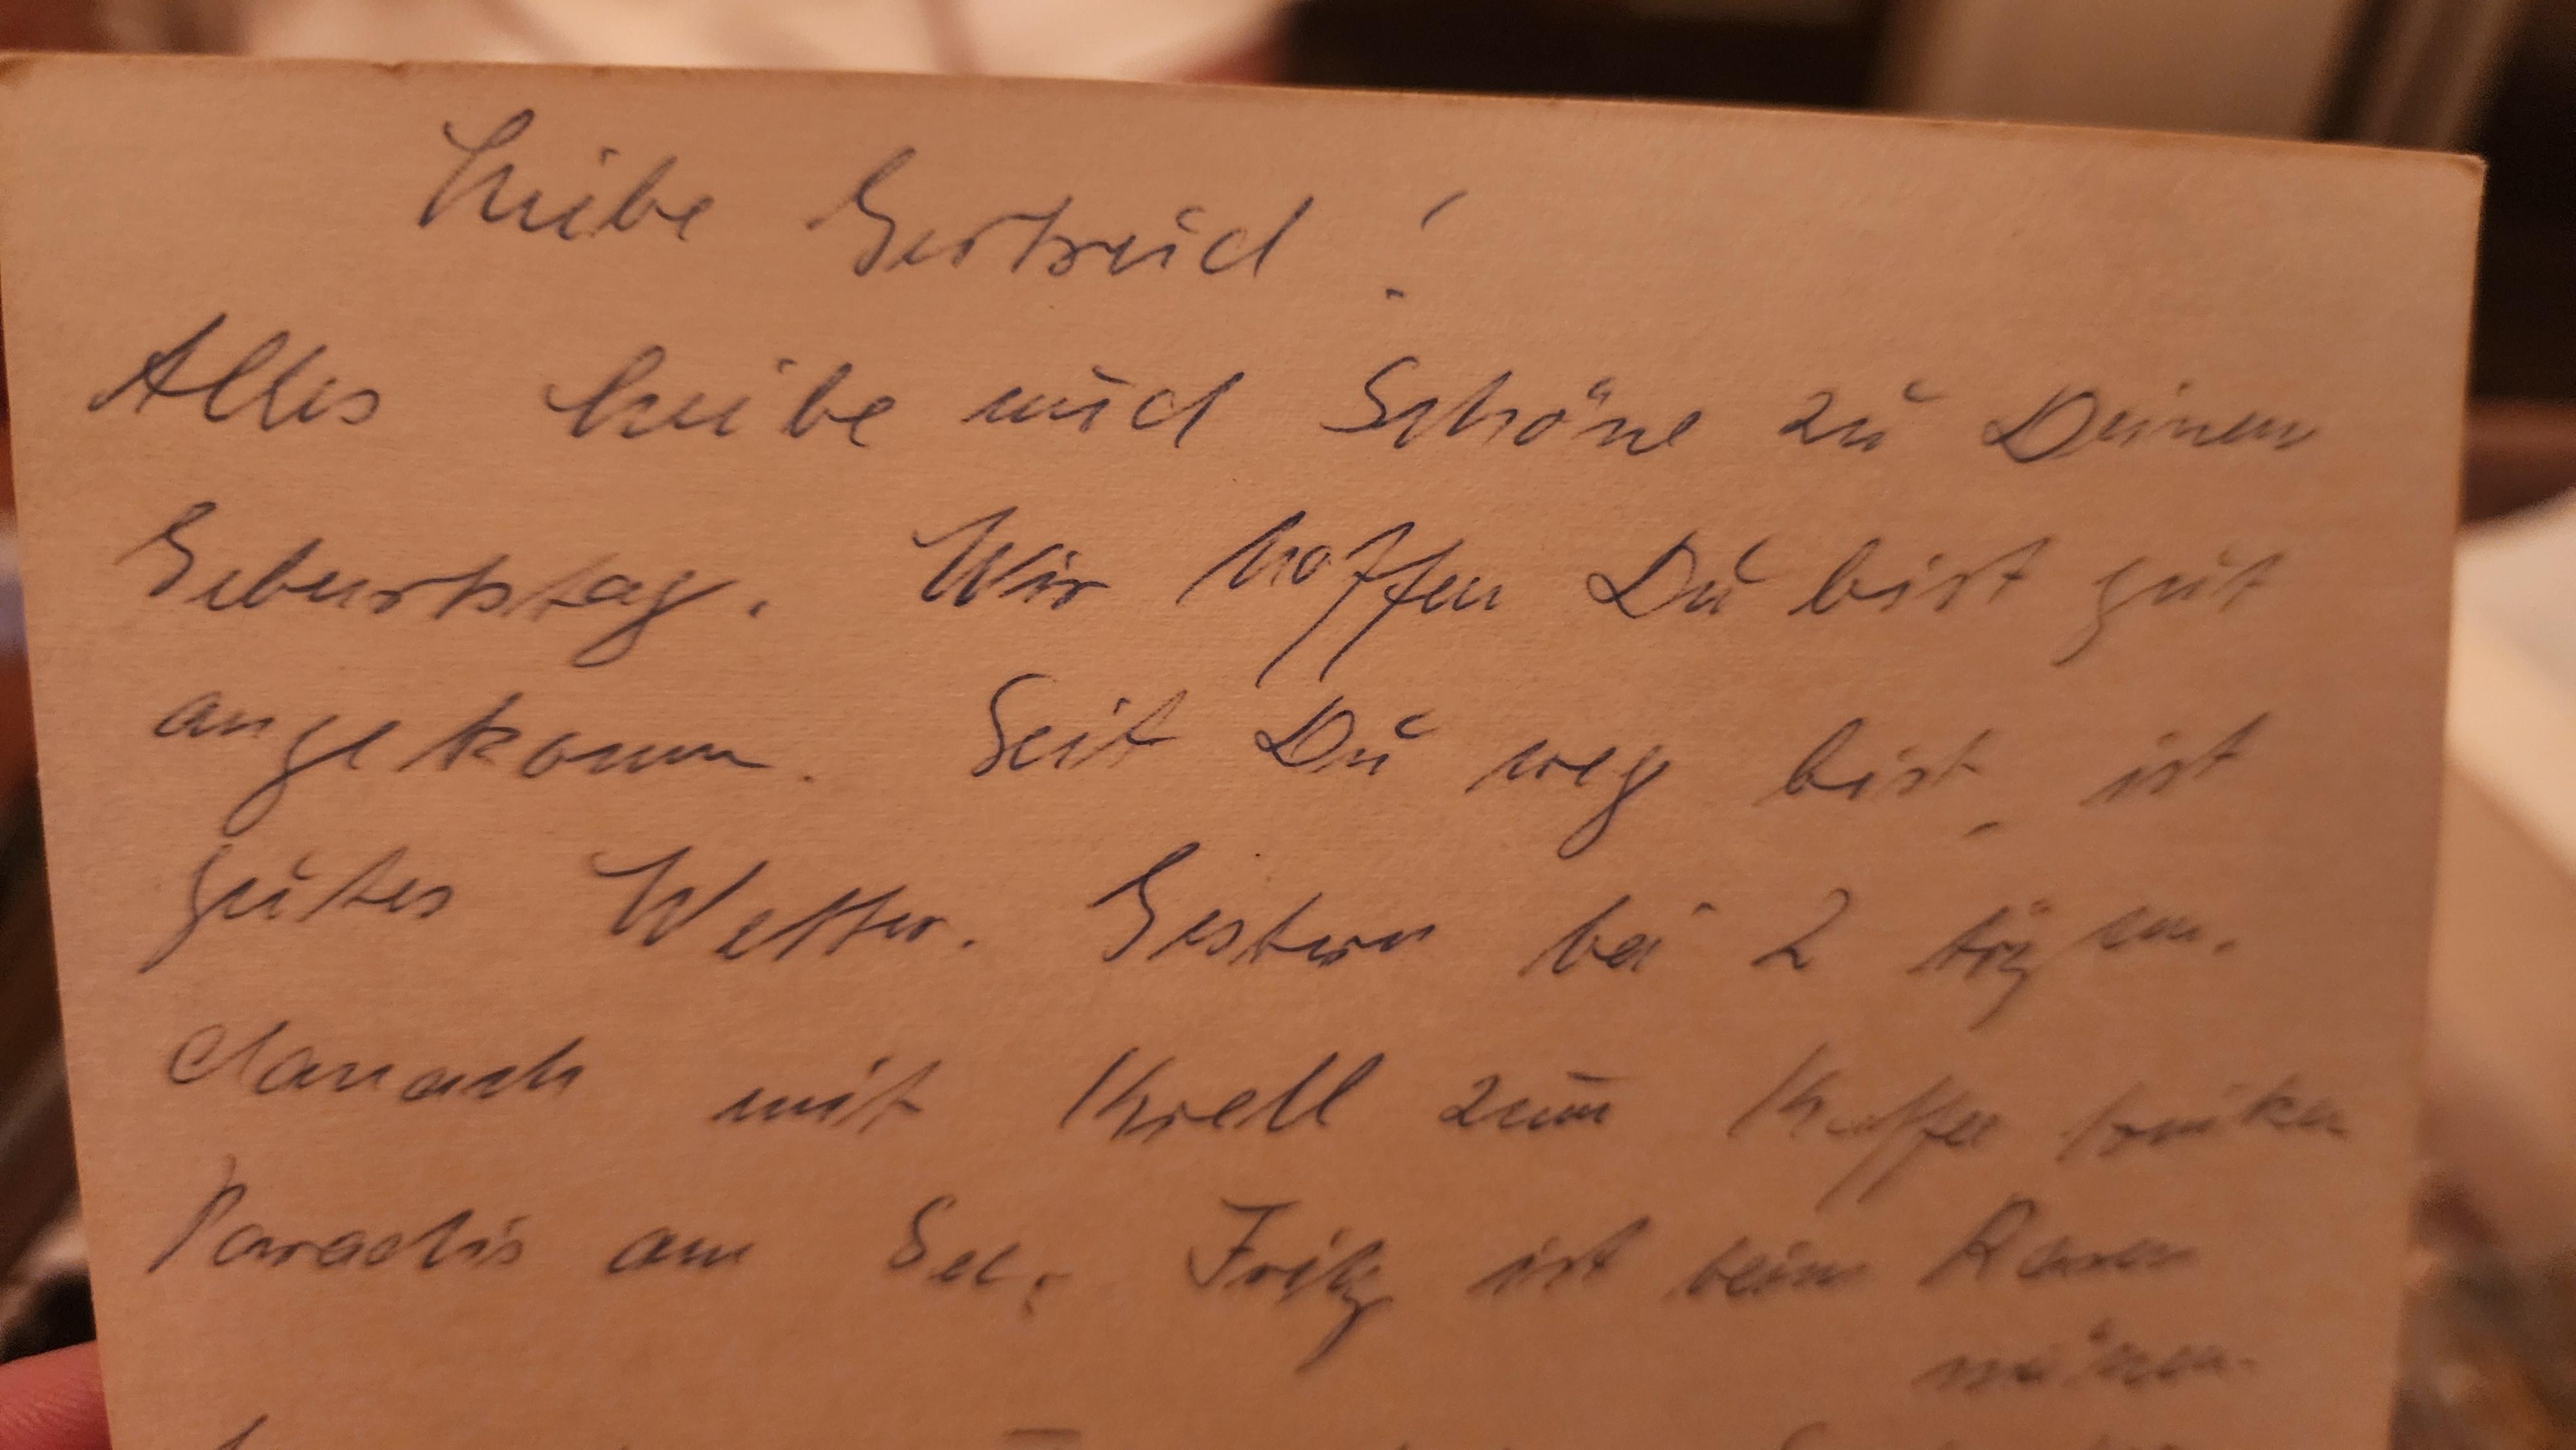 Liebe Gertrud!
Alles Liebe und Schöne zu Deinem
Geburtstag. Wir hoffen Du bist gut
angekomm. Seit Du weg bist, ist
gutes Wetter. Gestern bei 2
danach mit Krell zum Kaffee trinken
Paradis am See. Fritz ist beim Rasen
mähen.